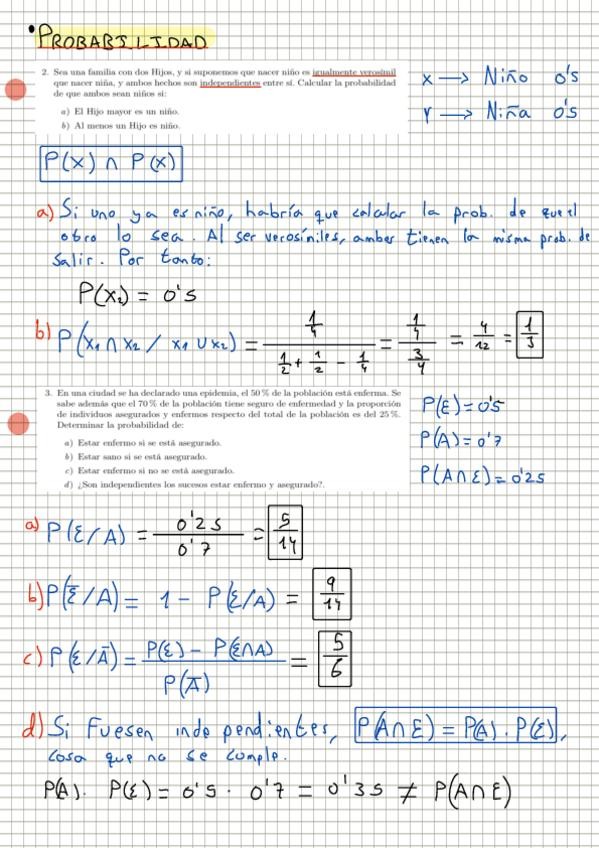 • PROBABILIDAD
2. Sea una familia con dos Hijos, y si suponemos que nacer niño es igualmente verosímil
que nacer niña, y ambos hechos son independientes entre sí. Calcular la probabilidad
de que ambos sean niños si:
a) El Hijo mayor es un niño.
b) Al menos un Hijo es niño.
x → Niño 0's
Y → Niña 0's
P(x) ∩ P(x)
a) Si uno ya es niño, habría que calcular la prob. de que el
otro lo sea. Al ser verosíniles, ambas tienen la misma prob. de
salir. Por tanto:
P(X₂) = 0's
b) P(x₁ ∩ x₂ / x₁ ∪ x₂) = (1/4) / (1/2 + 1/2 − 1/4) = (1/4) / (3/4) = 4/12 = 1/3
3. En una ciudad se ha declarado una epidemia, el 50 % de la población está enferma. Se
sabe además que el 70 % de la población tiene seguro de enfermedad y la proporción
de individuos asegurados y enfermos respecto del total de la población es del 25 %.
Determinar la probabilidad de:
a) Estar enfermo si se está asegurado.
b) Estar sano si se está asegurado.
c) Estar enfermo si no se está asegurado.
d) ¿Son independientes los sucesos estar enfermo y asegurado?.
P(E) = 0's
P(A) = 0'7
P(A∩E) = 0'25
a) P(E/A) = 0'25 / 0'7 = 5/14
b) P(Ē/A) = 1 − P(E/A) = 9/14
c) P(E/Ā) = (P(E) − P(E∩A)) / P(Ā) = 5/6
d) Si Fuesen independientes, P(A∩E) = P(A) · P(E),
cosa que no se cumple.
P(A) · P(E) = 0'5 · 0'7 = 0'35 ≠ P(A∩E)